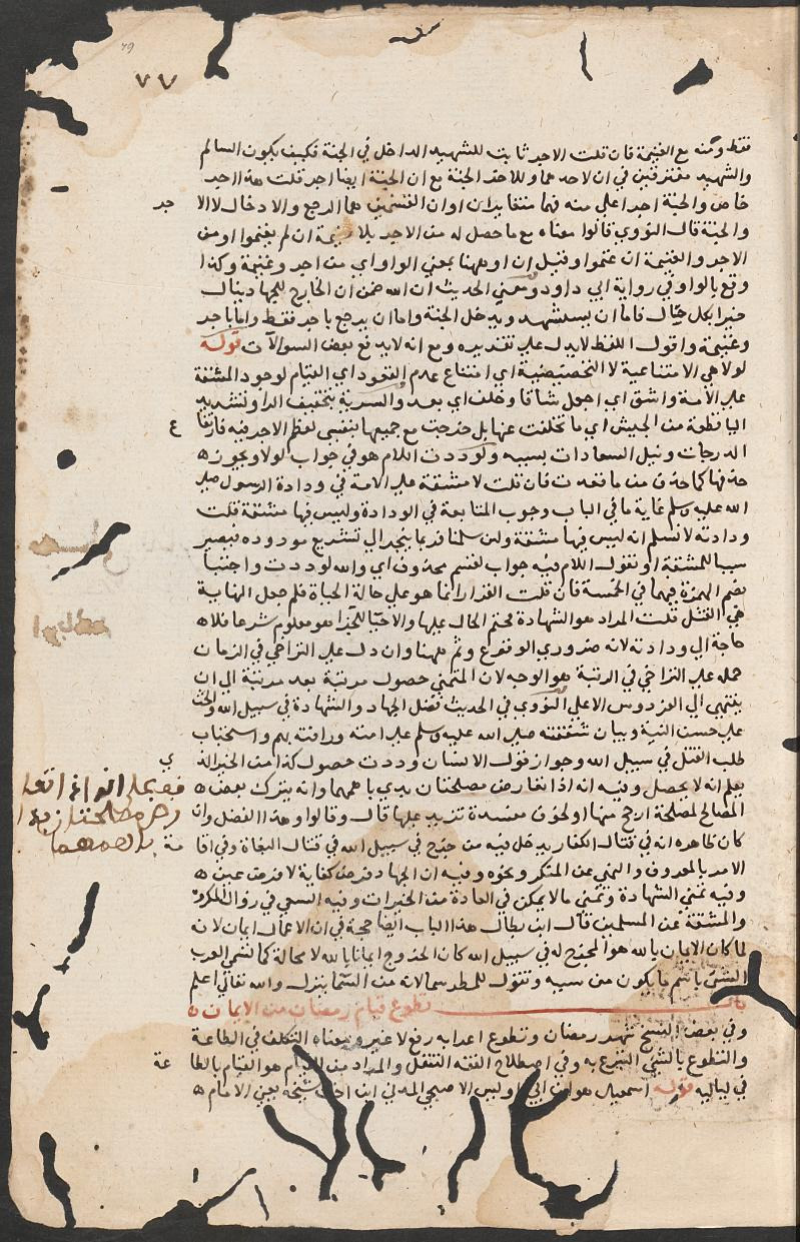 ٧٧
فقط ومنه مع الغنيمة فان قلت الاجر ثابت للشهيد الداخل في الجنة فكيف يكون السالم
والشهيد مفترقين في ان لاحدهما وللآخر الجنة مع ان الجنة ايضا اجر قلت هذا اجر
خاص والجنة اجر اعلى منه فهما متغايران او ان القسمين هما الرجع والادخال لا الاجر
والجنة قال النووي قالوا معناه مع ما حصل له من الاجر بلا غنيمة ان لم يغنموا او من
الاجر والغنيمة ان غنموا وقيل ان او ههنا بمعني الواو اي من اجر وغنيمة وكذا
وقع بالواو في رواية ابي داود ومعني الحديث ان الله ضمن ان الخارج للجهاد ينال
خيرا بكل حال فاما ان يستشهد ويدخل الجنة واما ان يرجع باجر فقط واما باجر
وغنيمة واقول اللفظ لا يدل علي تقديره ومع انه لا يدفع بعض السوالات قوله
لولا هي الامتناعية لا التخصيصية اي امتناع عدم القعود اي القيام لوجود المشقة
علي الامة واشق اي اجعل شاقا وخلف اي بعد والسرية بتخفيف الراء وتشديد
اليا قطعة من الجيش اي ما تخلفت عنها بل خرجت مع جميعها بنفسي لعظم الاجر فيه فارتفاع
الدرجات ونيل السعادات بسببه ولوددت اللام هو في جواب لولا ويجوز
حذفها كما حذف من ما قعدت فان قلت لا مشقة علي الامة في ودادة الرسول صلي
الله عليه وسلم غاية ما في الباب وجوب المتابعة في الودادة وليس فيها مشقة قلت
ودادته لا نسلم انه ليس فيها مشقة ولئن سلمنا فربما ينجر الي تشريع مودوده فيصير
سببا للمشقة او نقول اللام فيه جواب لقسم محذوف اي والله لوددت واحيا
بضم الهمزة فهما في الخمسة فان قلت القرار انما هو علي حالة الحياة فلم جعل النهاية
هي القتل قلت المراد هو الشهادة فختم الحال عليها والاحيا للجزا هو معلوم شرعا فلا
حاجة الي ودادته لانه ضروري الوقوع وثم ههنا وان دل علي التراخي في الزمان
حمله علي التراخي في الرتبة هو الوجه لان المتمني حصول مرتبة بعد مرتبة الي ان
ينتهي الي الفردوس الاعلي النووي في الحديث فضل الجهاد والشهادة في سبيل الله والحث
علي حسن النية وبيان شفقته صلي الله عليه وسلم علي امته ورافته بهم واستحباب
طلب القتل في سبيل الله وجواز قول الانسان وددت حصول كذا من الخير الذي
يعلم انه لا يحصل وفيه انه اذا تعارض مصلحتان بدي باهمهما وانه يترك بعض
المصالح لمصلحة ارجح منها او لخوف مفسدة تزيد عليها قال وقالوا وهذا الفضل وان
كان ظاهره انه في قتال الكفار يدخل فيه من خرج في سبيل الله في قتال البغاة وفي اقامة
الامر بالمعروف والنهي عن المنكر ونحوه وفيه ان الجهاد فرض كفاية لا فرض عين
وفيه تمني الشهادة وتمني ما لا يمكن في العادة من الخيرات وفيه السعي في زوال المكروه
والمشقة عن المسلمين قال ابن بطال هذا الباب ايضا حجة في ان الاعمال ايمان لانه
لما كان الايمان بالله هو المخرج له في سبيل الله كان الخروج ايمانا بالله لا محالة كما تسمي العرب
الشي باسم ما يكون من سببه وتقول للمطر سما لانه من السما ينزل والله تعالي اعلم
باب تطوع قيام رمضان من الايمان
وفي بعض النسخ شهر رمضان وتطوع اعرابه رفع لا غير ومعناه التكلف في الطاعة
والتطوع بالشي التبرع به وفي اصطلاح الفقه التنفل والمراد من القيام هو القيام بالطاعة
في لياليه قوله اسمعيل هو ابن ابي اويس الاصبحي المدني ابن اخت شيخه يعني الامام
فيه بعلم انه اذا تعا
رض مصلحتان بدي
باهمهما